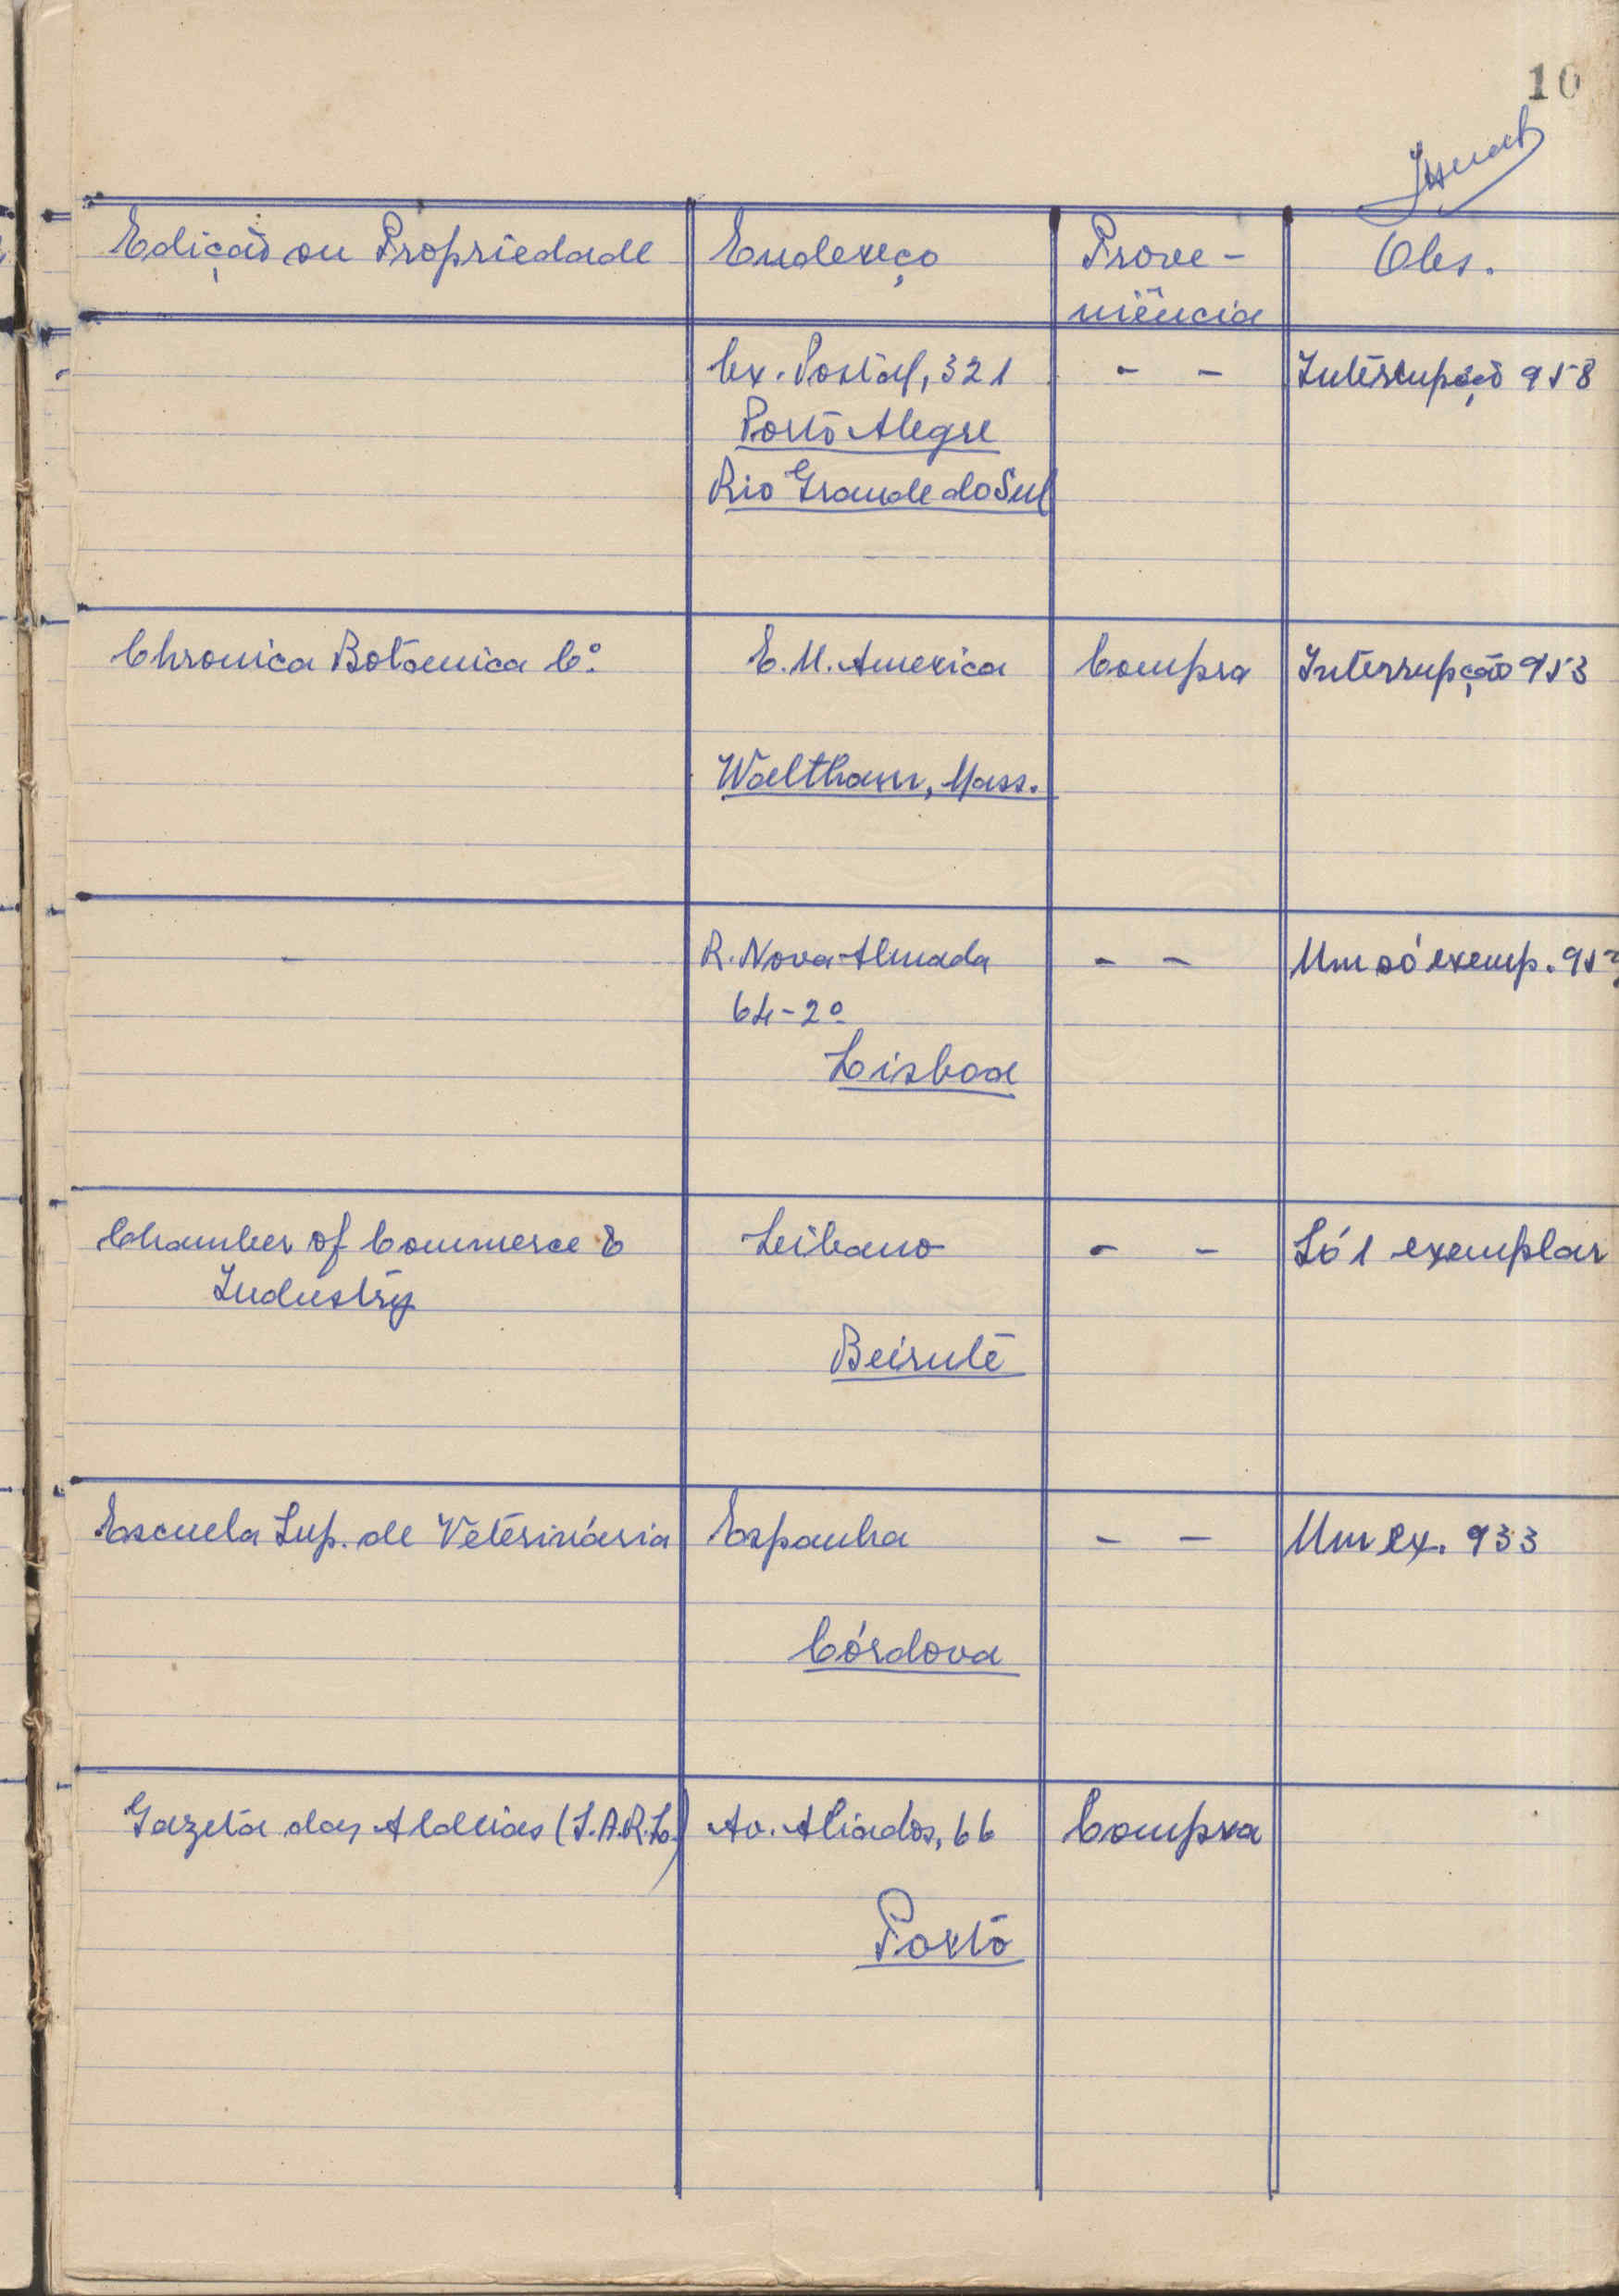 10
Edição ou Propriedade Endereço Prove- Obs.
niência
Cx. Postal, 321 - - Interrupção 958
Porto Alegre
Rio Grande do Sul
Chronica Botanica Cº. E. U. America Compra Interrupção 953
Waltham, Mass.
- R. Nova Almada - - Um só exemp.
64-2º
Lisboa
Chamber of Commerce & Líbano - - Só 1 exemplar
Industry
Beirute
Escuela Sup. de Veterinária Espanha - - Um ex. 933
Córdova
Gazeta das Aldeias (S.A.R.L.) Av. Aliados, 66 Compra
Porto